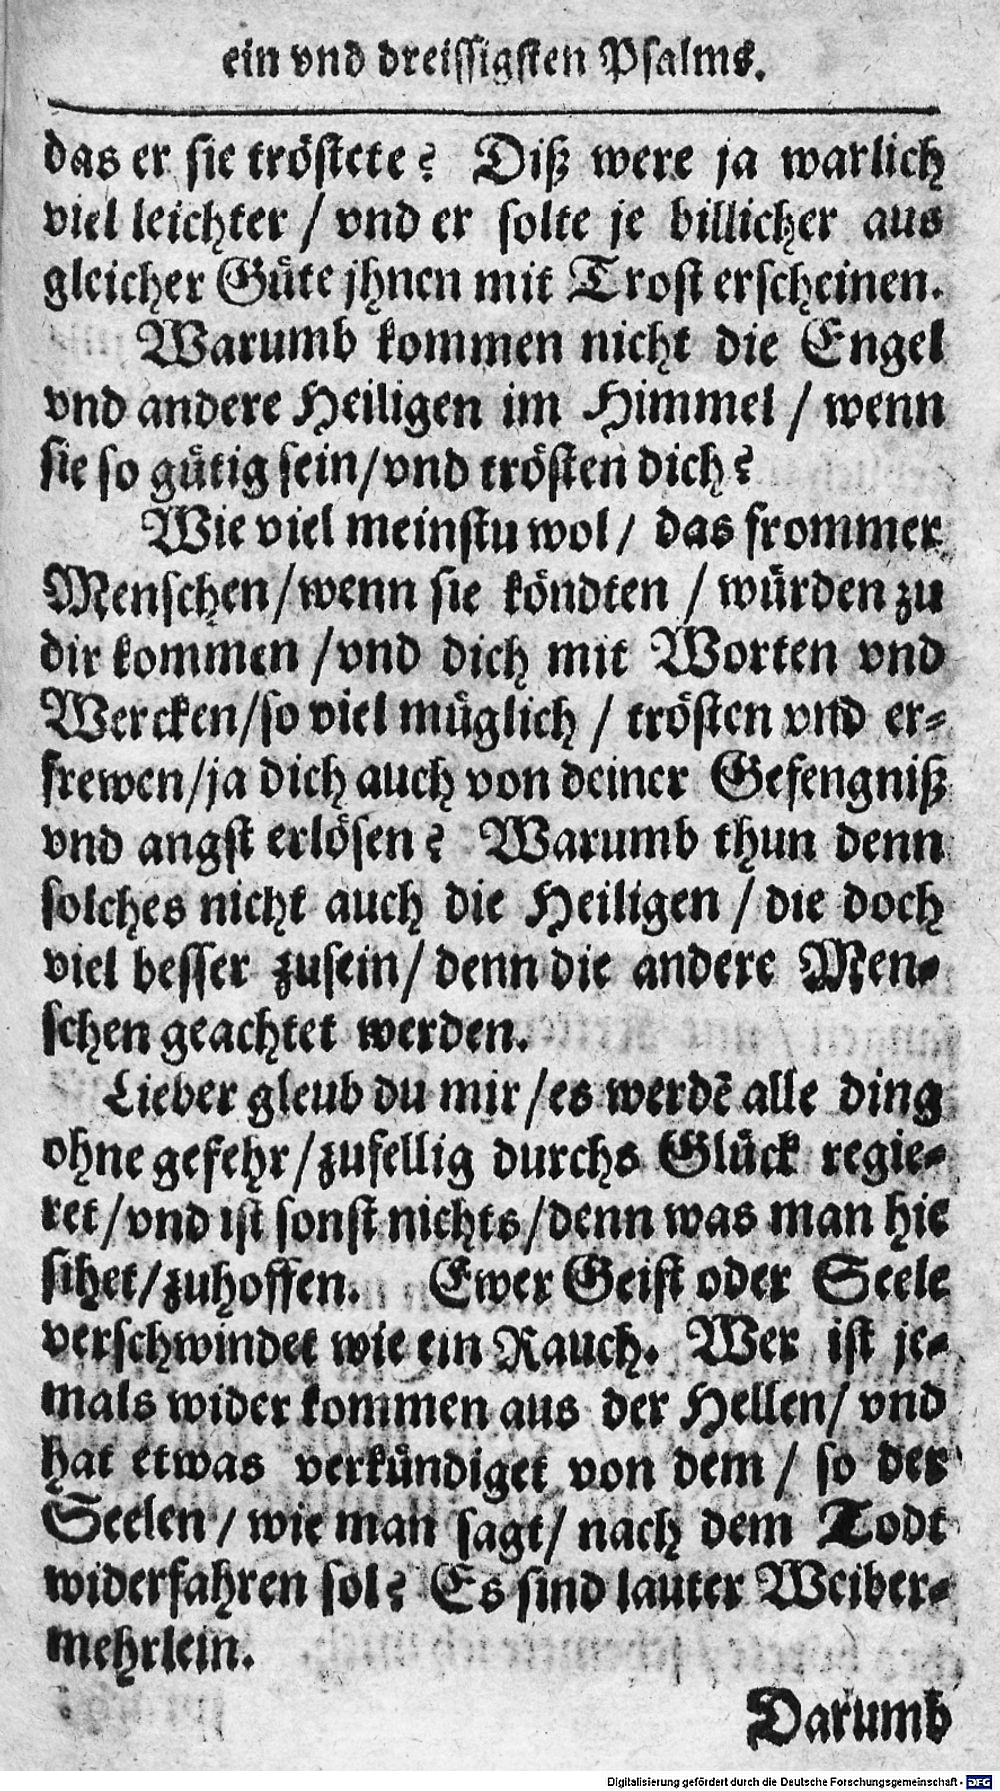 ein vnd dreissigsten Psalms.
das er sie tröstete? Diß were ja warlich
viel leichter / vnd er solte je billicher aus
gleicher Güte jhnen mit Trost erscheinen.
Warumb kommen nicht die Engel
vnd andere Heiligen im Himmel / wenn
sie so gütig sein/vnd trösten dich?
Wie viel meinstu wol / das frommer
Menschen/wenn sie köndten / würden zu
dir kommen /vnd dich mit Worten vnd
Wercken/so viel müglich / trösten vnd er-
frewen/ja dich auch von deiner Gefengniß
vnd angst erlösen? Warumb thun denn
solches nicht auch die Heiligen / die doch
viel besser zusein/ denn die andere Men-
schen geachtet werden.
Lieber gleub du mir /es werdē alle ding
ohne gefehr/zufellig durchs Glück regie-
ret/vnd ist sonst nichts/denn was man hie
sihet/zuhoffen. Ewer Geist oder Seele
verschwindet wie ein Rauch. Wer ist je-
mals wider kommen aus der Hellen/ vnd
hat etwas verkündiget von dem / so der
Seelen / wie man sagt/ nach dem Todt
widerfahren sol? Es sind lauter Weiber-
mehrlein.
Darumb
Digitalisierung gefördert durch die Deutsche Forschungsgemeinschaft - DFG